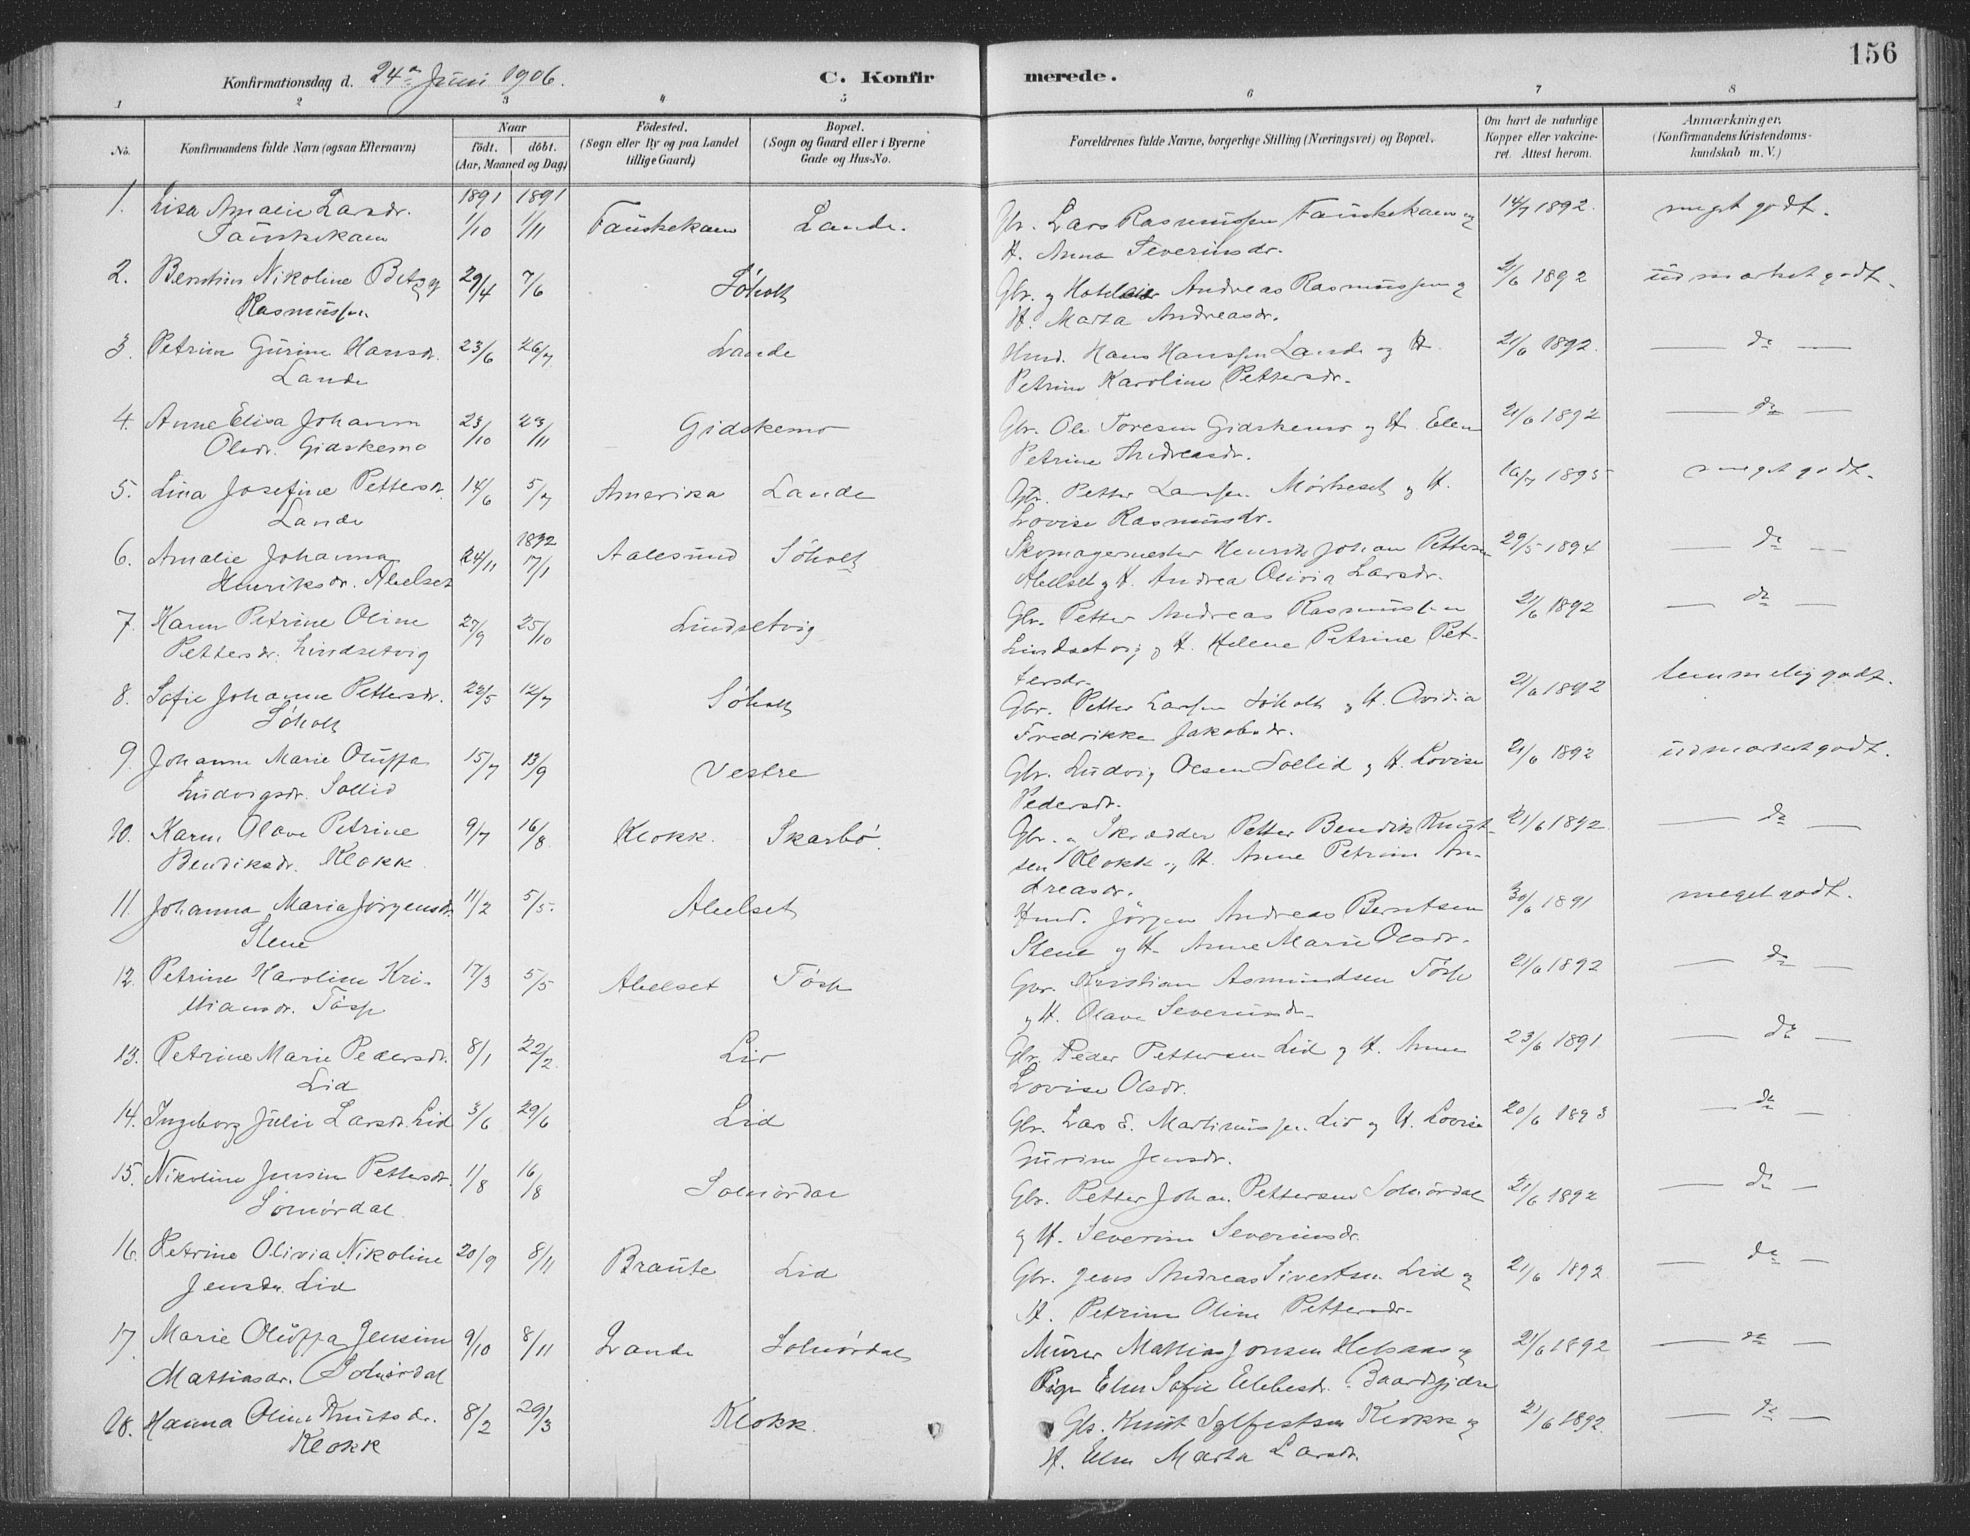 156
Konfirmationsdag d. 24de Juni 1906. C. Konfirmerede.
1 2 3 4 5 6 7 8
No. Konfirmandens fulde Navn (ogsaa Efternavn) Naar født. døbt. (Aar, Maaned og Dag) Fødested. (Sogn eller By og paa Landet tillige Gaard) Bopæl. (Sogn og Gaard eller i Byerne Gade og Hus-No. Forældrenes fulde Navne, borgerlige Stilling (Næringsvei) og Bopæl. Om havt de naturlige Kopper eller vakcineret. Attest herom. Anmærkninger. (Konfirmandens Kristendomskundskab m. V.)
1891 1891
1. Lisa Amalie Larsdr. 1/10 1/11 Fauskekaem Lande. Gbr. Lars Rasmussen Fauskekaem og 14/7 1892. meget godt.
Fauskekaem H. Anna Severinsdr.
2. Berntine Nikoline Betzy 29/4 7/6 Søholt Gbr. og Andreas Rasmussen og 21/6 1892 udmærket godt.
Rasmussen H. Marta Andreasdr.
3. Petrine Gurine Hansdr. 23/6 26/7 Lande Hmd. Hans Hanssen Lande og H. 21/6 1892. — do —
Lande Petrine Karoline Pettersdr.
4. Anne Elisa Johanne 23/10 29/11 Gidskemo Gbr. Ole Toresen Gidskemo og H. Elen 21/6 1892 — do —
Olsdr. Gidskemo Petrine Andreasdr.
5. Lina Josefine Pettersdr. 14/6 5/7 Amerika Lande Gbr. Petter Larssen Mørkeset og H. 16/7 1895 meget godt.
Lande Lovise Rasmusdr.
1892
6. Amalie Johanna 24/11 17/1 Aalesund Søholt Skomagermester Henrik Johan Pettersen 29/5 1894 — do —
Henriksdr. Abelset Abelset og H. Andrea Olivia Larsdr.
7. Karen Petrine Oline 27/9 25/10 Lindsetvig Gbr. Petter Andreas Rasmussen 21/6 1892 — do —
Pettersdr. Lindsetvig Lindsetvig og H. Helene Petrine Pettersdr.
8. Sofie Johanne Pettersdr. 22/5 12/7 Søholt Gbr. Petter Larssen Søholt og H. Ovidia 21/6 1892 temmelig godt.
Søholt Fredrikke Jakobsdr.
9. Johanne Marie Oluffa 15/7 13/9 Vestre Gbr. Ludvig Olsen Sollid og H. Lovise 21/6 1892 udmærket godt.
Ludvigsdr. Sollid Pedersdr.
10. Karen Olave Petrine 9/7 16/8 Klokk. Skarbø. Gbr. og Skrædder Petter Bendik Knut- 21/6 1892. — do —
Bendiksdr. Klokk. sen Klokk og H. Anne Petrine An-
dreasdr.
11. Johanna Maria Jørgensdr. 11/2 5/5. Abelset Hmd. Jørgen Andreas Berntsen 30/6 1891 meget godt.
Stene Stene og H. Anne Marie Olsdr.
12. Petrine Karoline Kri- 17/3 5/5 Abelset Tøsse Gbr. Kristian Asmundsen Tøsse 21/6 1892 — do —
stiansdr. Tøsse og H. Olave Severinsdr.
13. Petrine Marie Pedersdr. 8/1 22/2 Lid Gbr. Peder Pettersen Lid og H. Anne 23/6 1891 — do —
Lid Lovise Olsdr.
14. Ingeborg Julie Larsdr. Lid 3/6 29/6 Lid Gbr. Lars E. Martinussen Lid og H. Lovise 20/6 1893 — do —
Gurine Jensdr.
15. Nikoline Jensine Pettersdr. 1/8 16/8 Solnørdal Gbr. Petter Johan Pettersen Solnørdal 21/6 1892 — do —
Solnørdal og H. Severine Severinsdr.
16. Petrine Olivia Nikoline 20/9 8/11 Braute Lid Gbr. Jens Andreas Sivertsen Lid og 21/6 1892 — do —
Jensdr. Lid H. Petrine Oline Pettersdr.
17. Marie Oluffa Jensine 9/10 8/11 Lande Solnørdal Murer Mattias Jonsen og 21/6 1892 — do —
Mattiasdr. Solnørdal Pige Elen Sofie Ellefsdr.
18. Hanna Oline Knutsdr. 8/2 29/3 Klokk. Gbr. Knut Sylfestsen Klokk og 21/6 1892. — do —
Klokk H. Elen Marta Larsdr.